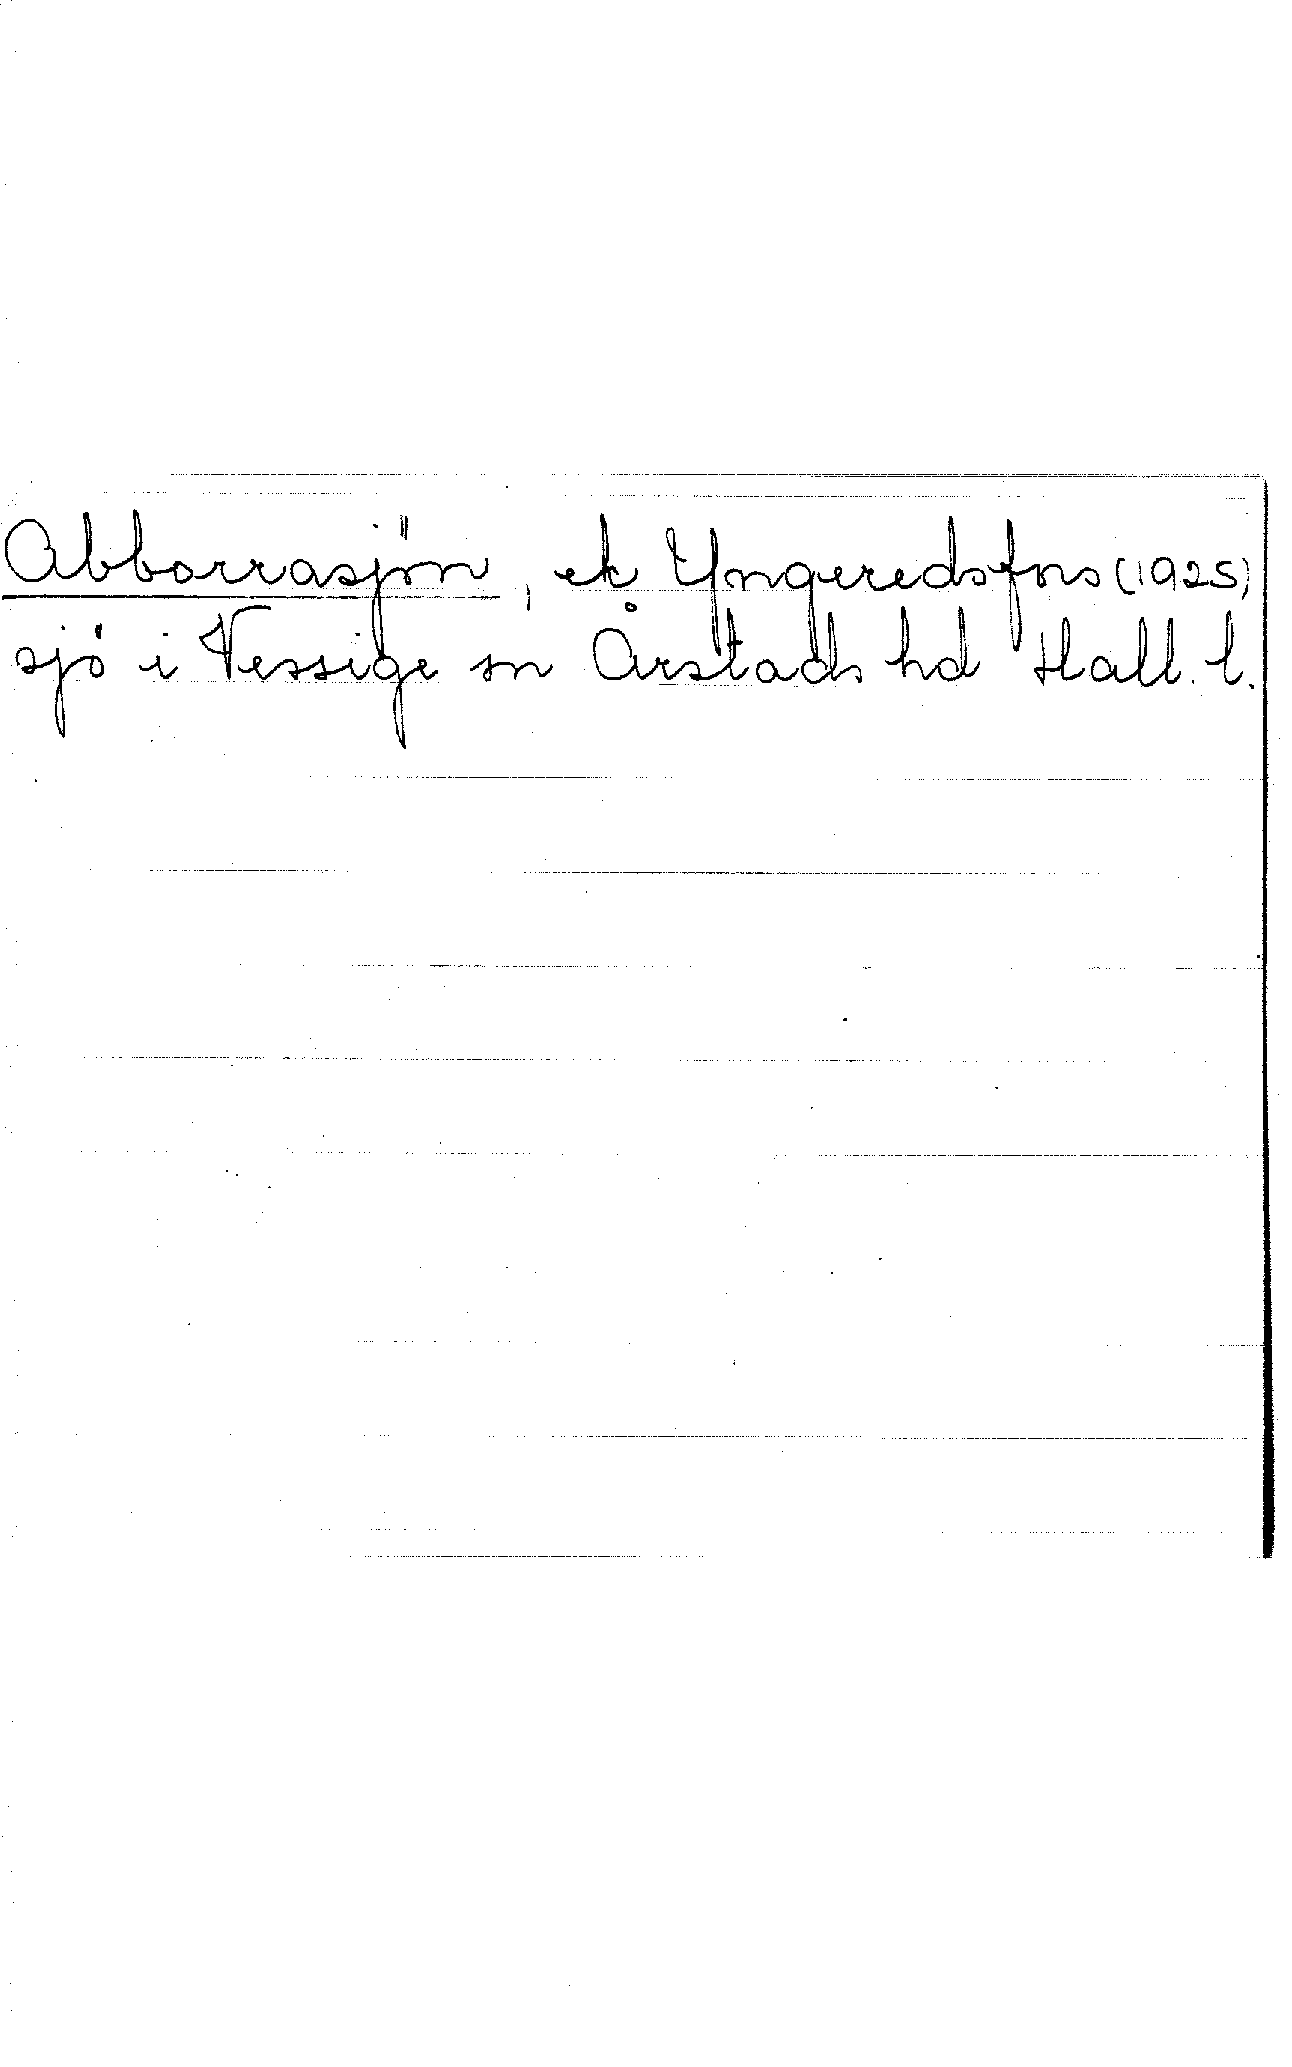 Abborrasjön, ek Yngeredsfors (1925)
sjö i Vessige sn Årstads hd Hall. l.